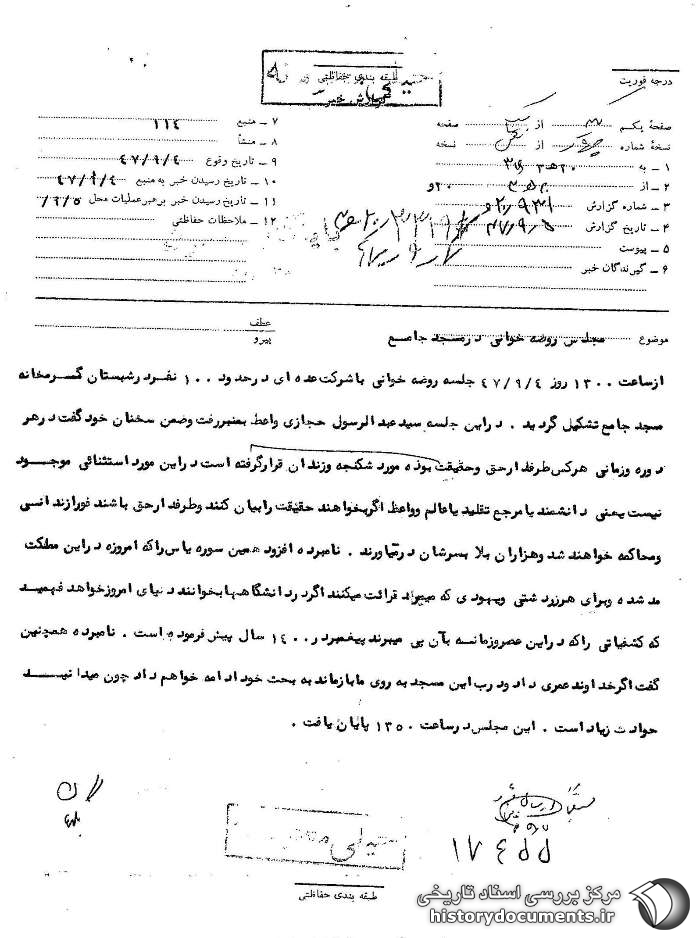 درجه فوریت
طبقه بندی حفاظتی
گزارش خبر
صفحهٔ یکم از صفحه
نسخهٔ شماره از نسخه
۱ ـ به ۳۱۶
۲ ـ از ۲۰ و
۳ ـ شماره گزارش
۴ ـ تاریخ گزارش ۴۷/۹/۵
۵ ـ پیوست
۶ ـ گیرندگان خبر
۷ ـ منبع ۱۱۴
۸ ـ منشأ
۹ ـ تاریخ وقوع ۴۷/۹/۴
۱۰ ـ تاریخ رسیدن خبر به منبع ۴۷/۹/۴
۱۱ ـ تاریخ رسیدن خبر برهبر عملیات محل ۹/۵/
۱۲ ـ ملاحظات حفاظتی
موضوع مجلس روضه خوانی در مسجد جامع
عطف
پیرو
از ساعت ۱۳۰۰ روز ۴۷/۹/۴ جلسه روضه خوانی با شرکت عده ای در حدود ۱۰۰ نفر در شبستان گرمخانه
مسجد جامع تشکیل گردید . در این جلسه سید عبدالرسول حجازی واعظ بمنبر رفت وضمن سخنان خود گفت در هر
دوره وزمانی هرکس طرفدار حق وحقیقت بوده مورد شکنجه وزندان قرار گرفته است در این مورد استثنائی موجود
نیست یعنی دانشمند یا مرجع تقلید یا عالم وواعظ اگر بخواهند حقیقت را بیان کنند وطرفدار حق باشند فورا زندانی
ومحاکمه خواهند شد وهزاران بلا بسرشان در میاورند . نامبرده افزود همین سوره یاس را که امروزه در این مملکت
مد شده وبرای هر زردشتی ویهودی که میمیرد قرائت میکنند اگر در دانشگاهها بخوانند دنیای امروز خواهد فهمید
که کشفیاتی را که در این عصر وزمانه به آن پی میبرند پیغمبر در ۱۴۰۰ سال پیش فرموده است . نامبرده همچنین
گفت اگر خداوند عمری داد و درب این مسجد به روی ما باز ماند به بحث خود ادامه خواهم داد چون میدانید
حوادث زیاد است . این مجلس در ساعت ۱۳۵۰ پایان یافت .
۱۷۴۵۵
طبقه بندی حفاظتی
مرکز بررسی اسناد تاریخی
historydocuments.ir